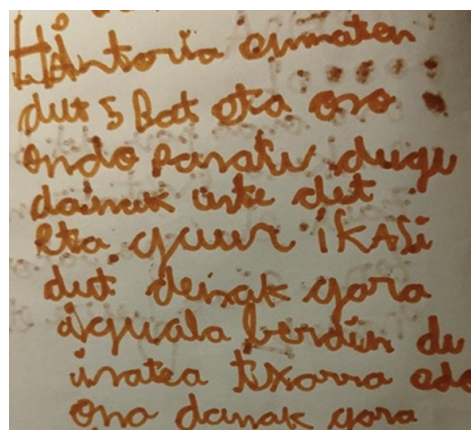 ematen
dut 5 bat eta oso
ondo pasatu dugu
danak uste det
eta gaur iKASi
dut denak gara
iguala berdin du
izatea txarra edo
ona danak gara